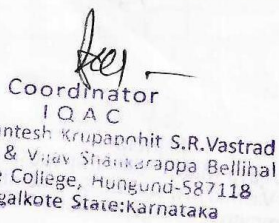 Coordinator
I Q A C
ntesh Krupaposhit S.R.Vastrad
& Vijay Shankarappa Bellihal
e College, Hungund-587118
galkote State:Karnataka